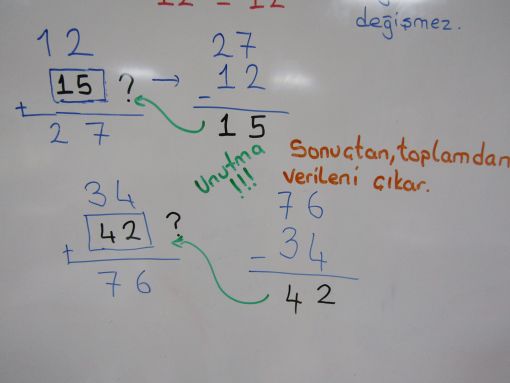 12 = 12
değişmez.
12
+ 15 ? →
27
27
- 12
15
Unutma
!!!
Sonuçtan, toplamdan
verileni çıkar.
34
+ 42 ?
76
76
- 34
42